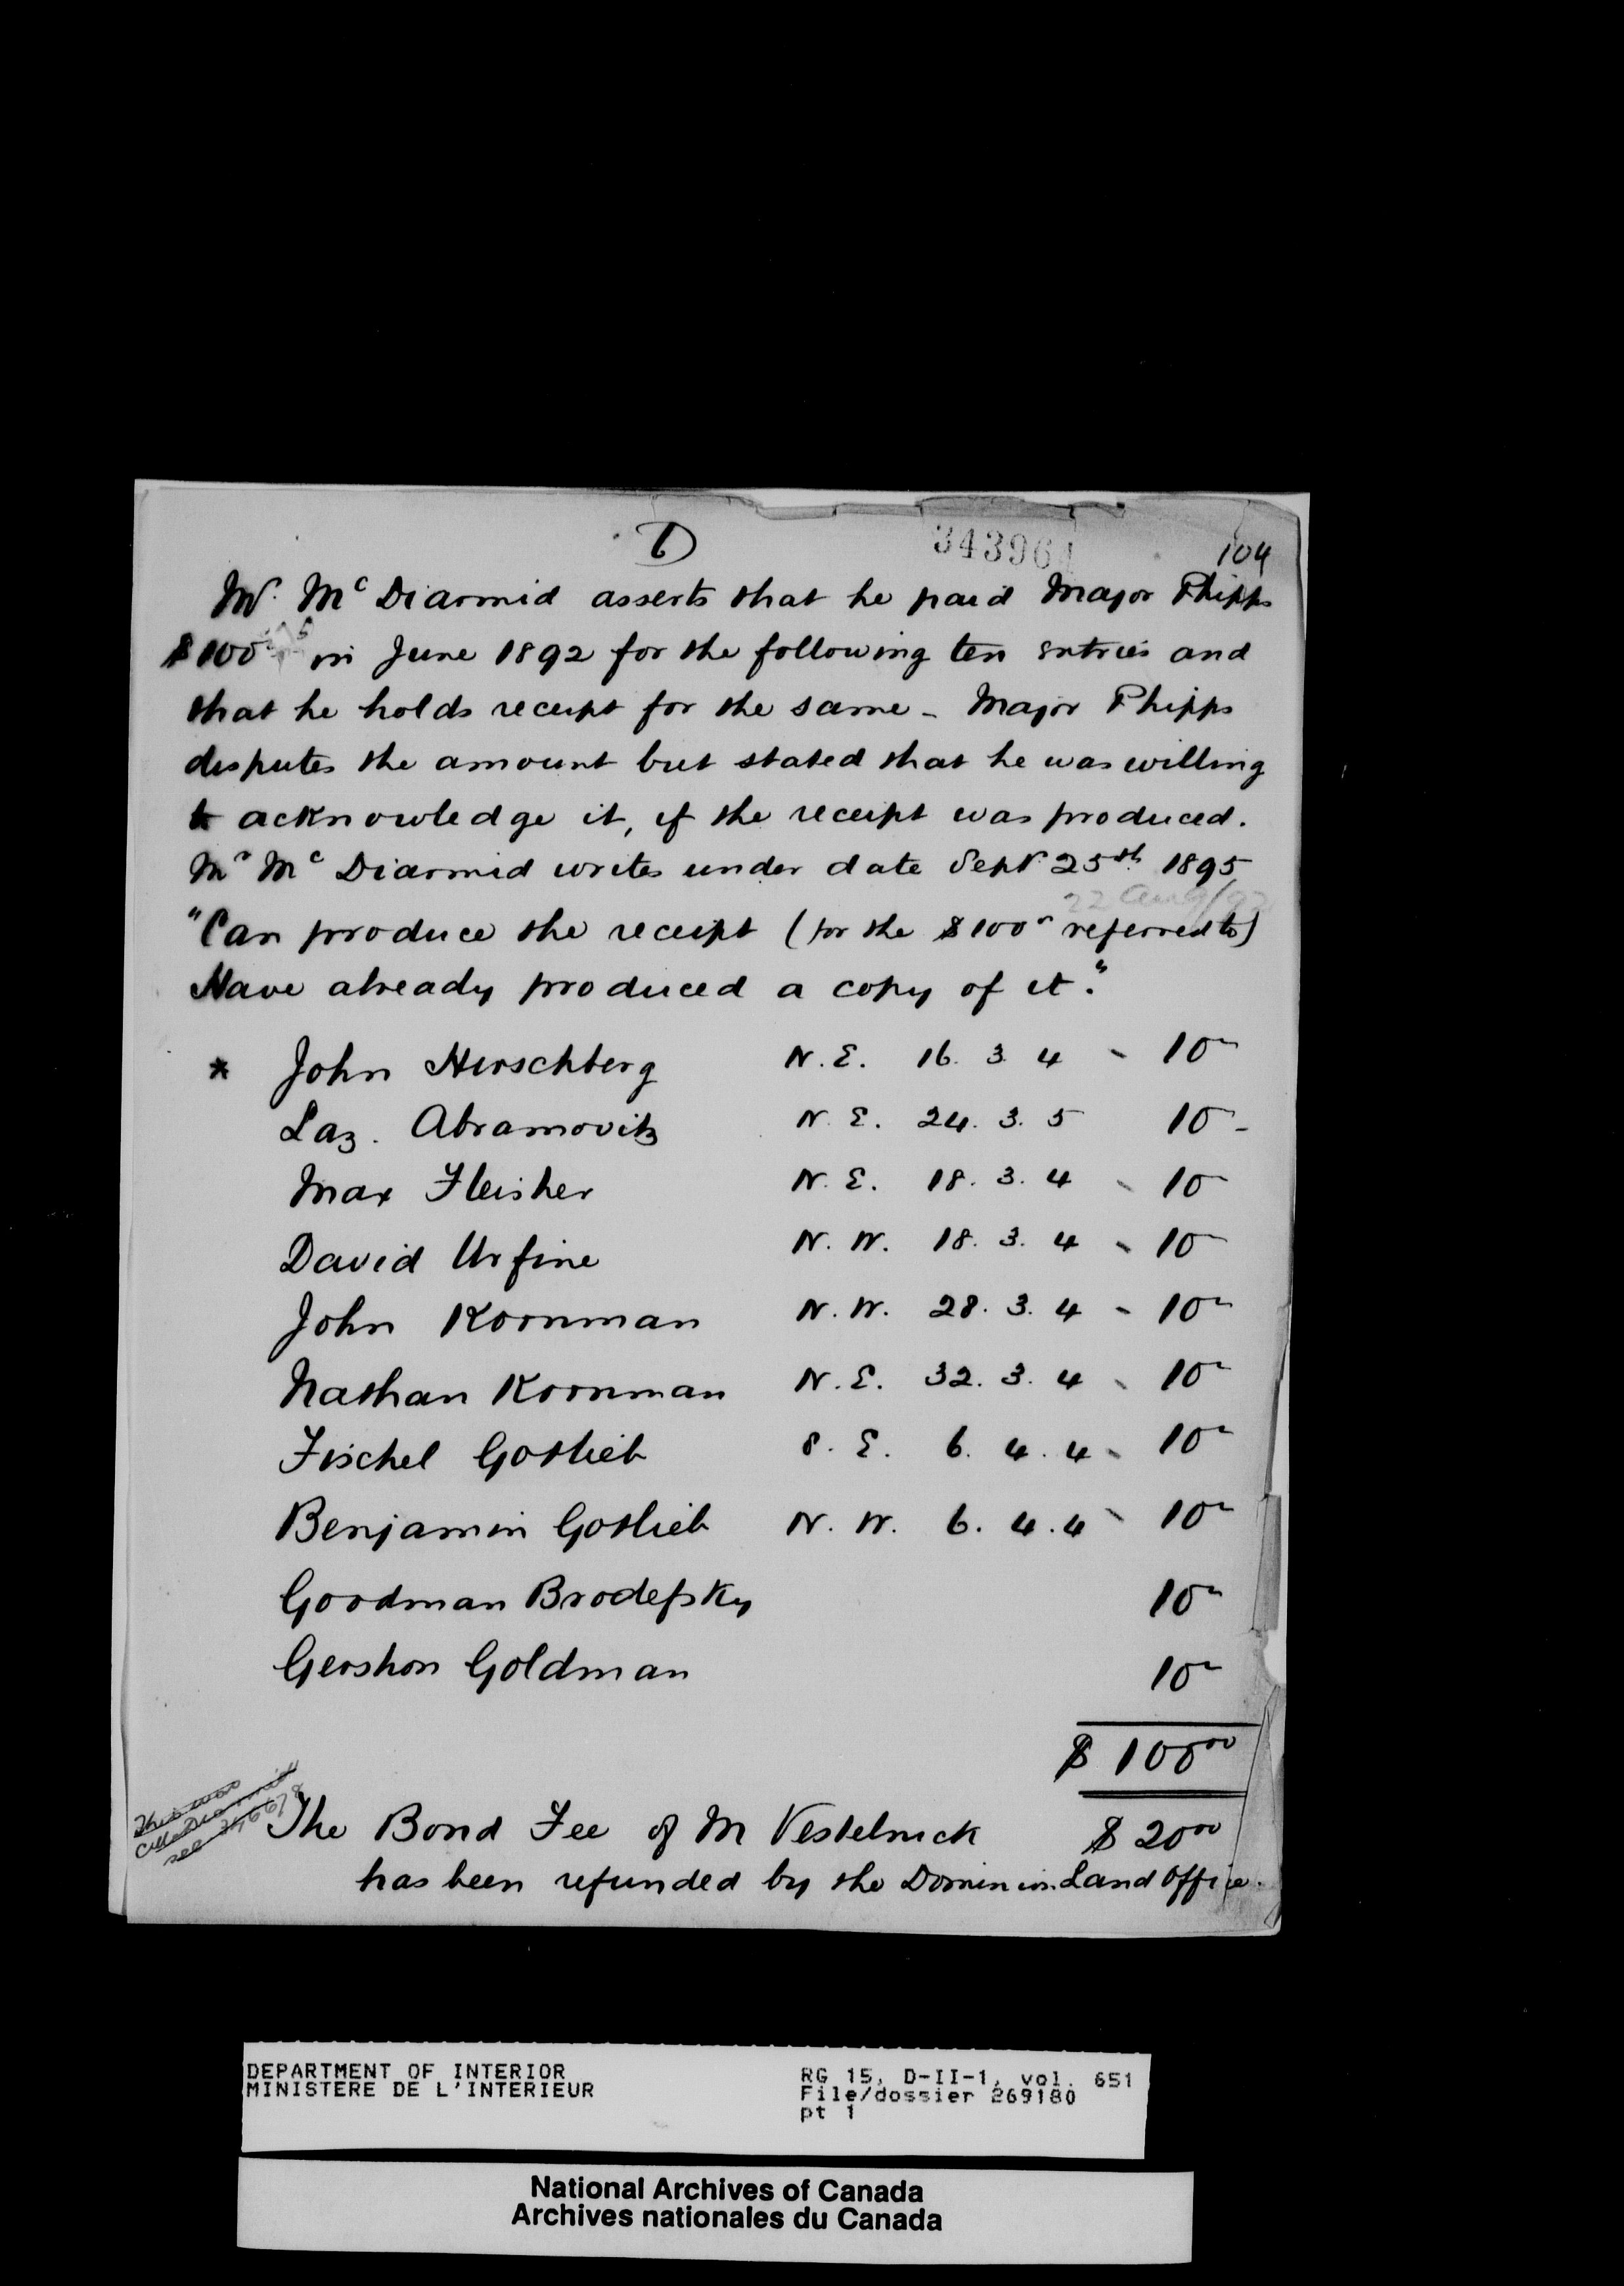 D
343961
104
Mr. Mc Diarmid asserts that he paid Major Phipps
$100 in June 1892 for the following ten entries and
that he holds receipt for the same - Major Phipps
disputes the amount but stated that he was willing
to acknowledge it, if the receipt was produced.
Mr Mc Diarmid writes under date Sept 25th 1895
22 Aug/92
"Can produce the receipt (for the $100 referred to)
Have already produced a copy of it."
* John Hirschberg N.E. 16. 3. 4 - 10
Laz. Abramovitz N.E. 24. 3. 5 10 -
Max Fleisher N.E. 18. 3. 4 - 10
David Urfine N.W. 18. 3. 4 - 10
John Kornman N.W. 28. 3. 4 - 10
Nathan Kornman N.E. 32. 3. 4 - 10
Fischel Gotlieb S.E. 6. 4. 4 - 10
Benjamin Gotlieb N.W. 6. 4. 4 - 10
Goodman Brodefsky 10
Gershon Goldman 10
$ 100 00
This was
McDiarmid
see
The Bond Fee of M Vestelnick $ 20 00
has been refunded by the Dominion Land Office.
DEPARTMENT OF INTERIOR
MINISTERE DE L'INTERIEUR
RG 15, D-II-1, vol. 651
File/dossier 269180
pt 1
National Archives of Canada
Archives nationales du Canada